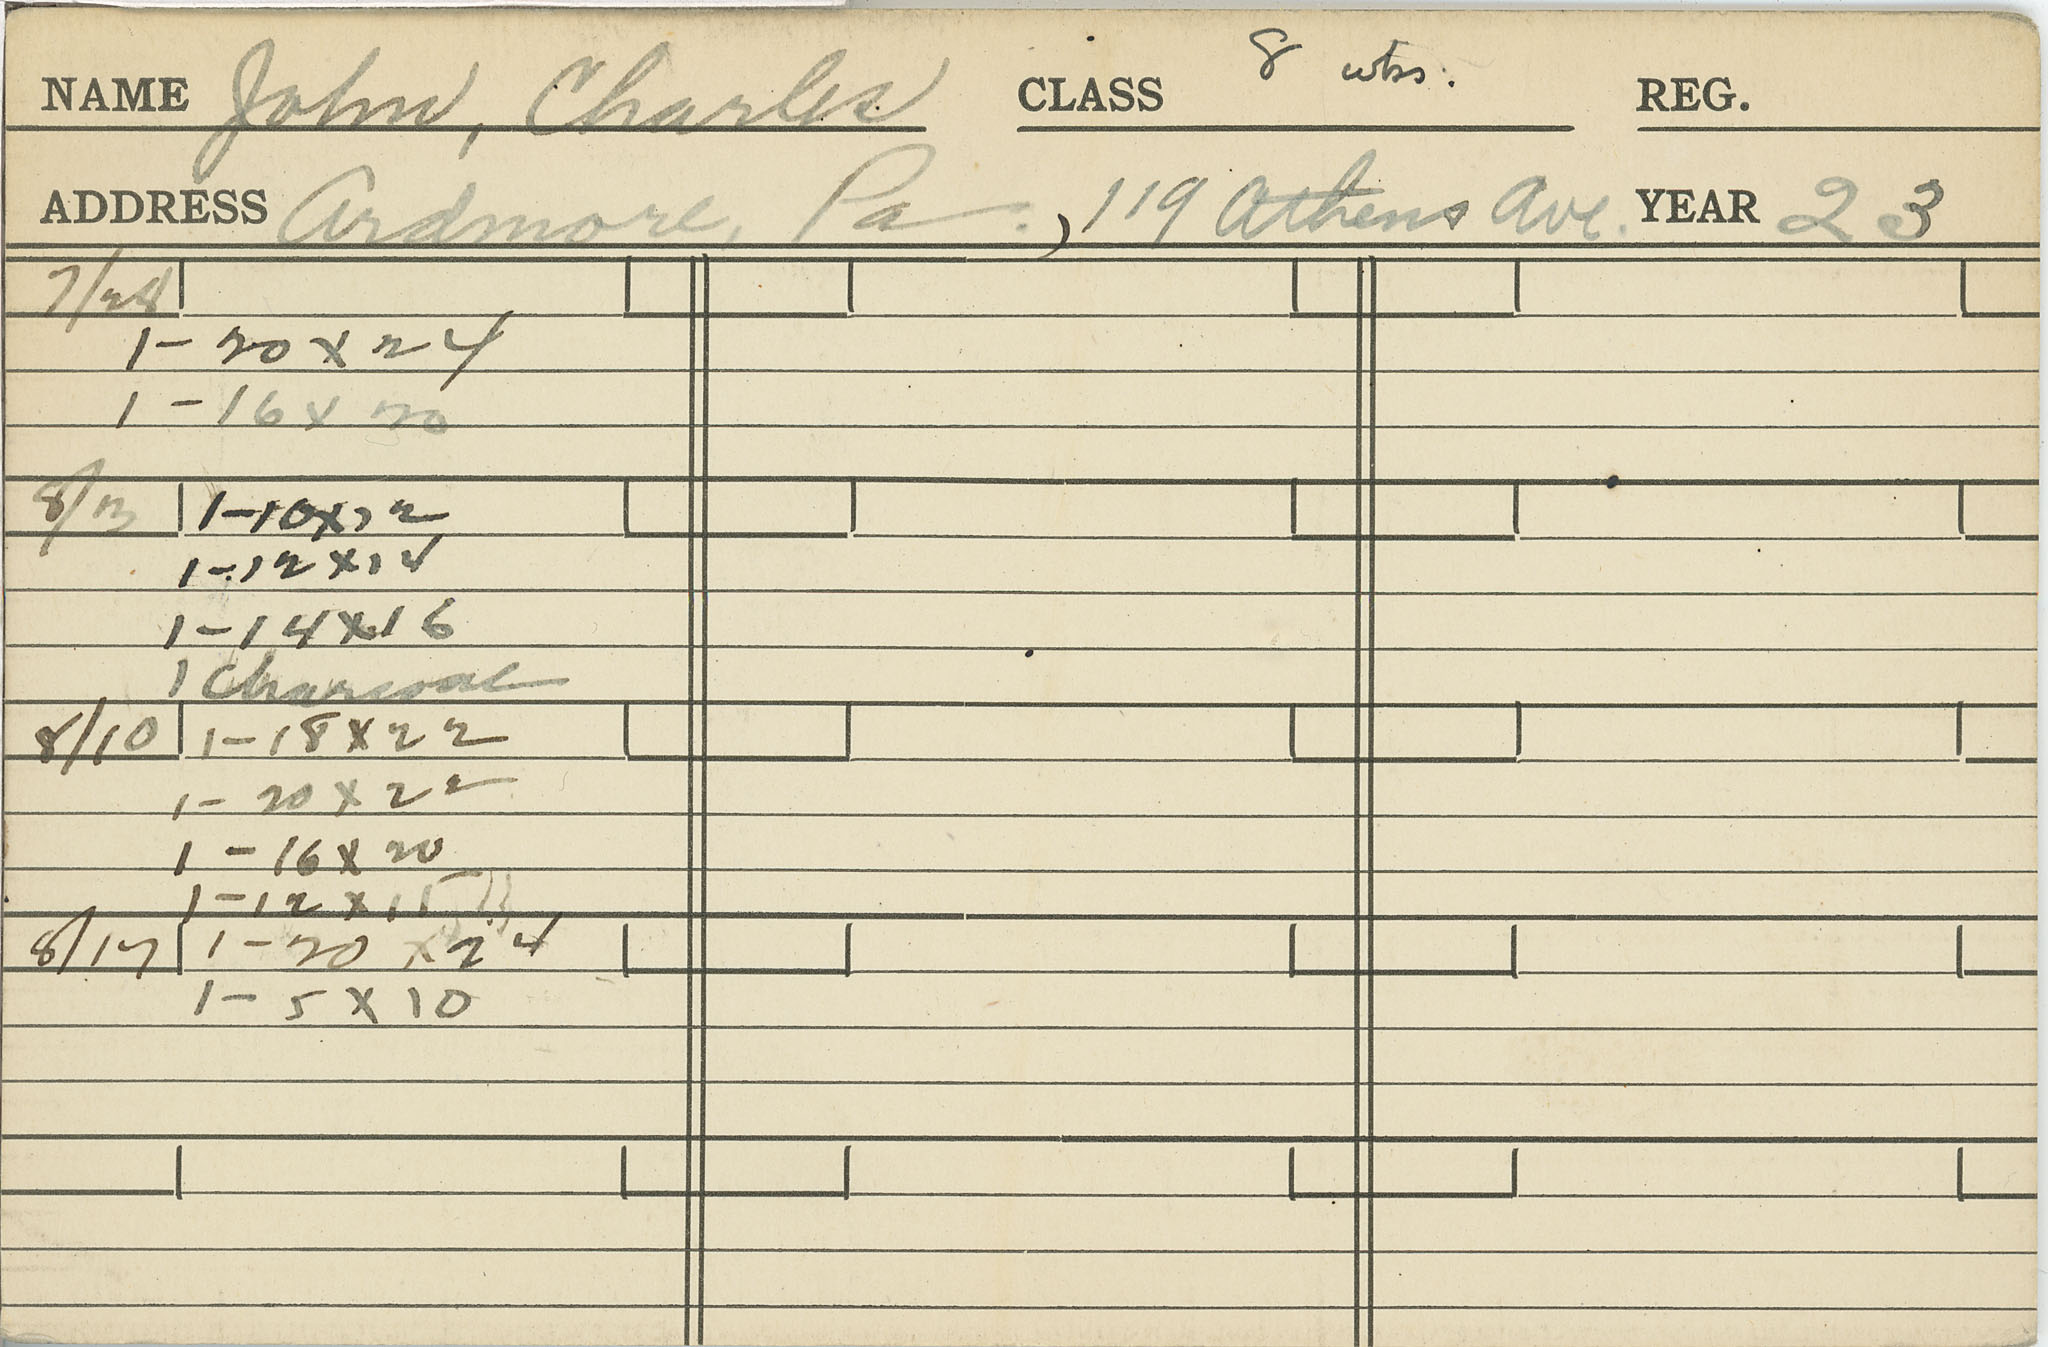 NAME John, Charles CLASS 8 wks. REG.
ADDRESS Ardmore, Pa., 119 Athens Ave. YEAR 23
7/28
1-20 x 24
1-16 x 20
8/3 1-10x12
1-12 x 14
1-14x16
1 Charcoal
8/10 1-18x22
1-20 x 22
1-16 x 20
1-12 x 15
8/17 1-20 x 24
1-5 x 10